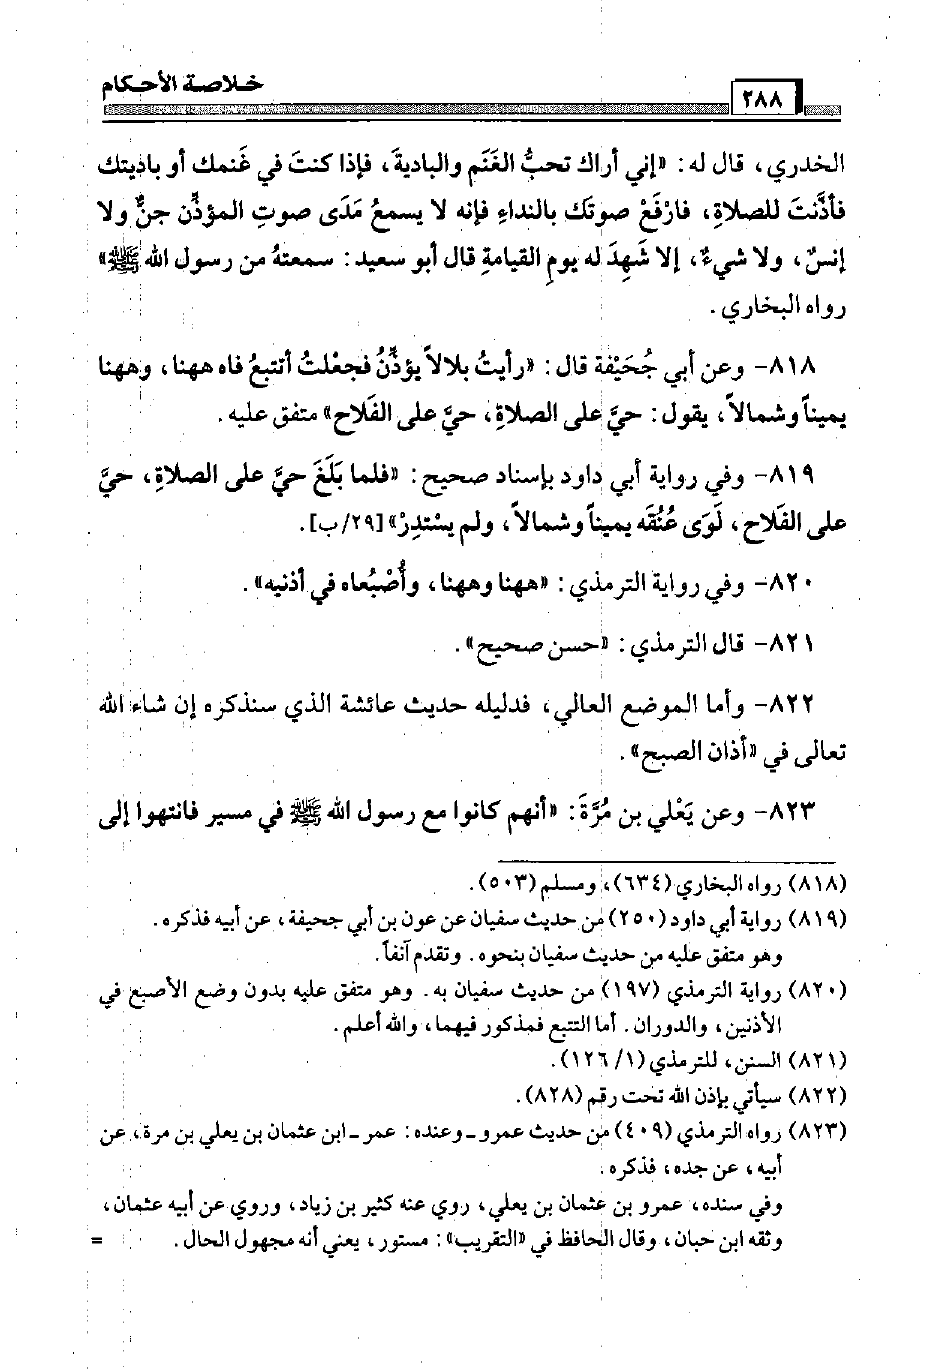 خلاصة الأحكام
٢٨٨
الخدري، قال له: «إني أراك تحبُّ الغَنَم والباديةَ، فإذا كنتَ في غَنمك أو باديتك
فأذَّنتَ للصلاةِ، فارْفَعْ صوتَك بالنداءِ فإنه لا يسمعُ مَدَى صوتِ المؤذِّن جنٌّ ولا
إنسٌ، ولا شيءٌ، إلا شَهِدَ له يوم القيامةِ قال أبو سعيد: سمعتهُ من رسول الله ﷺ»
رواه البخاري.
٨١٨- وعن أبي جُحَيْفة قال: «رأيتُ بلالاً يؤذِّنُ فجعْلتُ أتتبعُ فاه ههنا، وههنا
يميناً وشمالاً، يقول: حيَّ على الصلاةِ، حيَّ على الفَلاح» متفق عليه.
٨١٩- وفي رواية أبي داود بإسناد صحيح: «فلما بَلَغَ حيَّ على الصلاةِ، حيَّ
على الفَلاح، لَوَى عُنُقَه يميناً وشمالاً، ولم يسْتدِرْ» [٢٩/ب].
٨٢٠- وفي رواية الترمذي: «ههنا وههنا، وأُصْبُعاه في أذنيه».
٨٢١- قال الترمذي: «حسن صحيح».
٨٢٢- وأما الموضع العالي، فدليله حديث عائشة الذي سنذكره إن شاء الله
تعالى في «أذان الصبح».
٨٢٣- وعن يَعْلي بن مُرَّةَ: «أنهم كانوا مع رسول الله ﷺ في مسير فانتهوا إلى
(٨١٨) رواه البخاري (٦٣٤)، ومسلم (٥٠٣).
(٨١٩) رواية أبي داود (٢٥٠) من حديث سفيان عن عون بن أبي جحيفة، عن أبيه فذكره.
وهو متفق عليه من حديث سفيان بنحوه. وتقدم آنفاً.
(٨٢٠) رواية الترمذي (١٩٧) من حديث سفيان به. وهو متفق عليه بدون وضع الأصبع في
الأذنين، والدوران. أما التتبع فمذكور فيهما، والله أعلم.
(٨٢١) السنن، للترمذي (١/ ١٢٦).
(٨٢٢) سيأتي بإذن الله تحت رقم (٨٢٨).
(٨٢٣) رواه الترمذي (٤٠٩) من حديث عمرو ـ وعنده: عمر ـ ابن عثمان بن يعلي بن مرة، عن
أبيه، عن جده، فذكره.
وفي سنده، عمرو بن عثمان بن يعلي، روي عنه كثير بن زياد، وروي عن أبيه عثمان،
وثقه ابن حبان، وقال الحافظ في «التقريب»: مستور، يعني أنه مجهول الحال. =